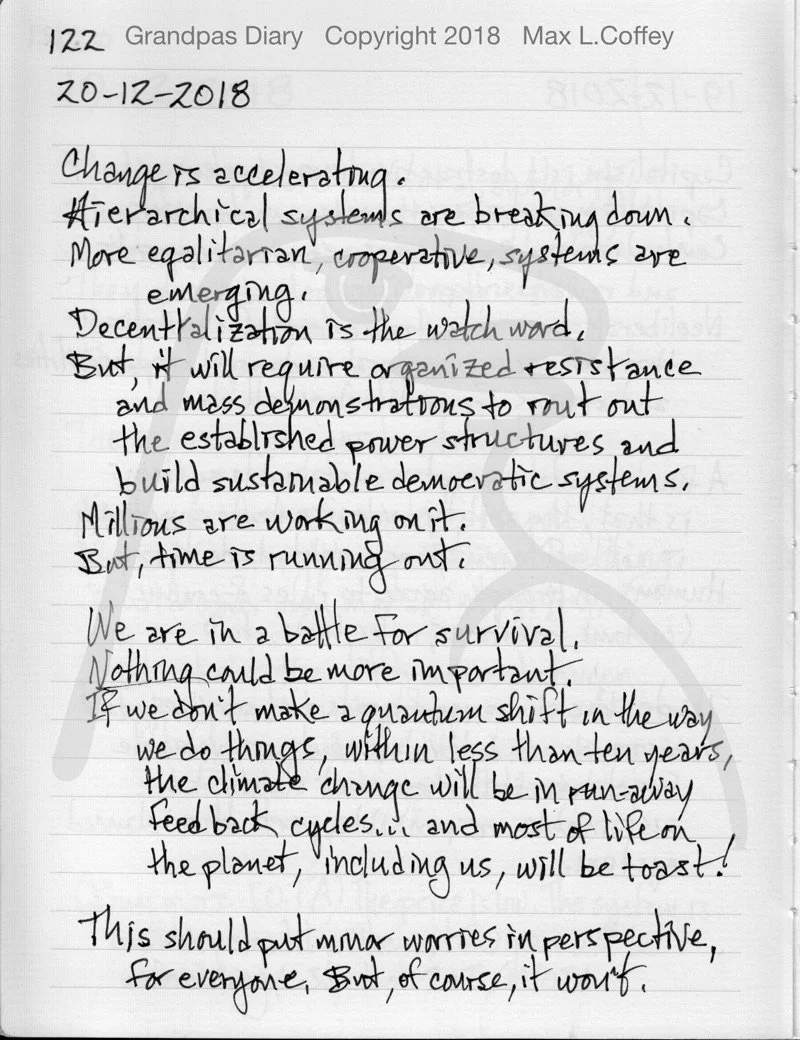 122 Grandpas Diary Copyright 2018 Max L.Coffey
20-12-2018
Change is accelerating.
Hierarchical systems are breaking down.
More egalitarian, cooperative, systems are
emerging.
Decentralization is the watch word.
But, it will require organized resistance
and mass demonstrations to rout out
the established power structures and
build sustainable democratic systems.
Millions are working on it.
But, time is running out.
We are in a battle for survival.
Nothing could be more important.
If we don't make a quantum shift in the way
we do things, within less than ten years,
the climate change will be in run-away
feedback cycles... and most of life on
the planet, including us, will be toast!
This should put minor worries in perspective,
for everyone. But, of course, it won't.